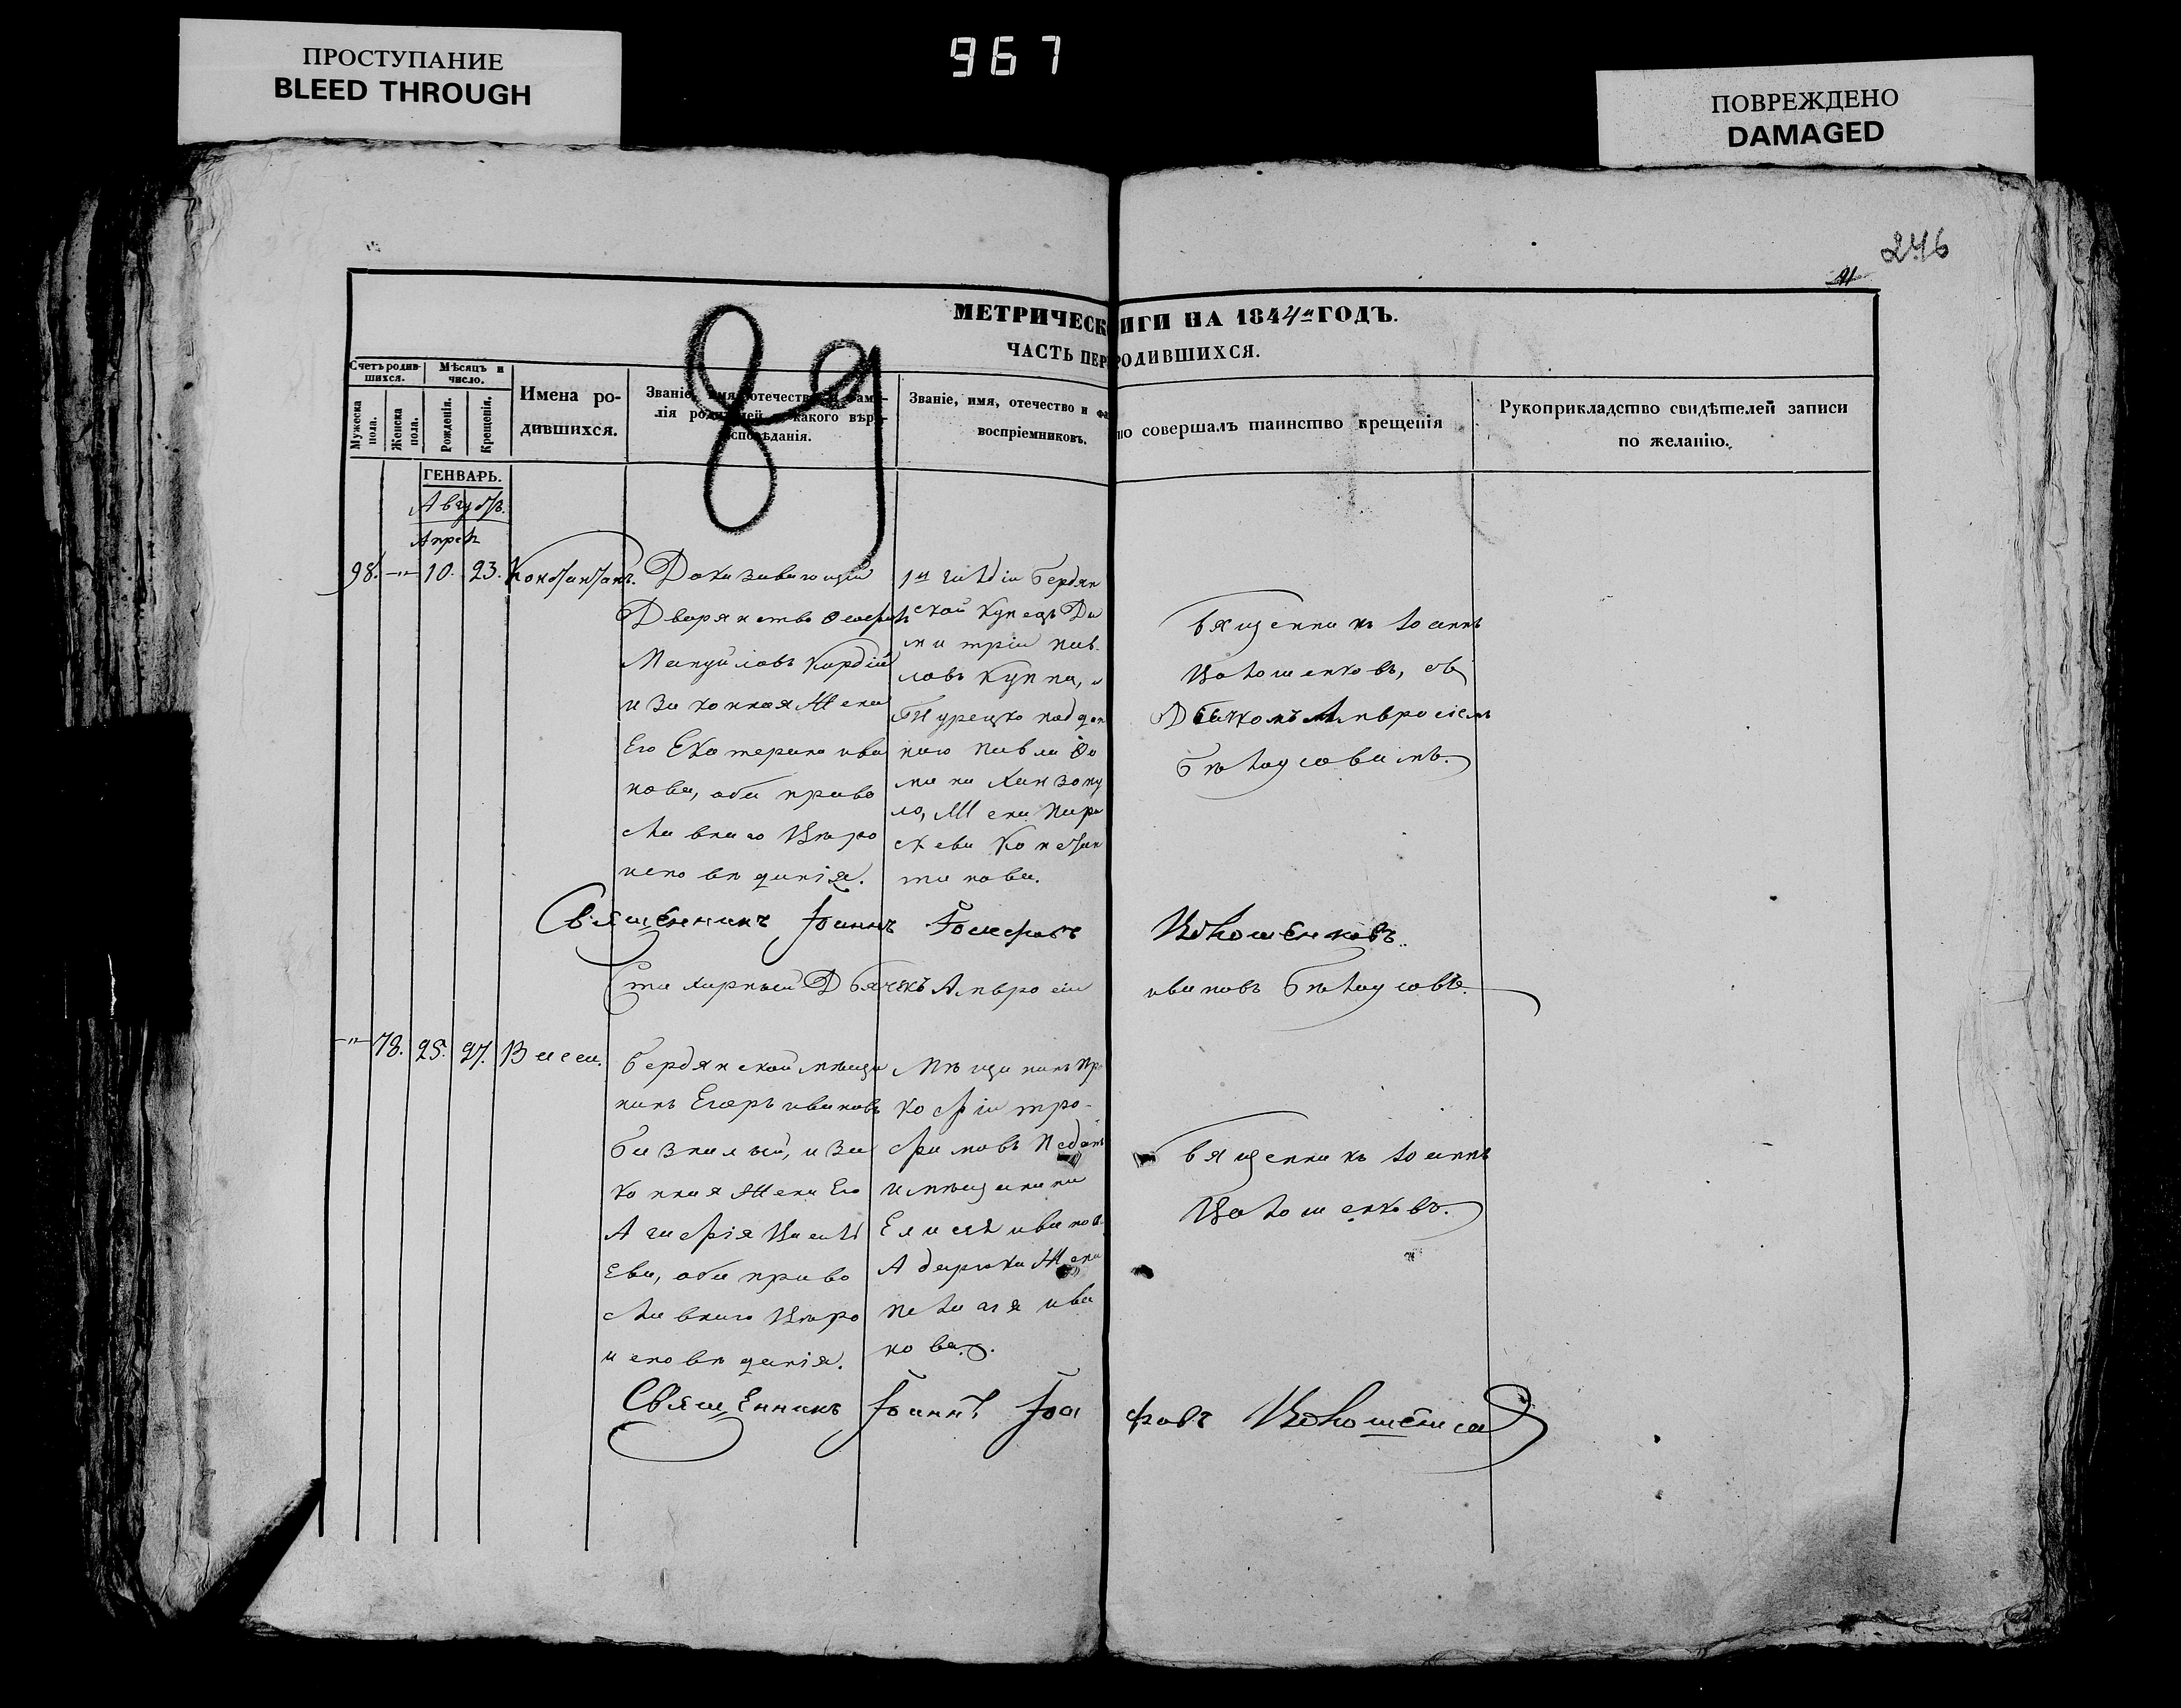 ПРОСТУПАНИЕ
BLEED THROUGH
967
ПОВРЕЖДЕНО
DAMAGED
246
МЕТРИЧЕСК ИГИ НА 1844й ГОДЪ.
ЧАСТЬ ПЕР РОДИВШИХСЯ.
89
Счетъ родив-
шихся.
Мужеска
пола.
Женска
пола.
Мѣсяцъ и
число.
Рожденія.
Крещенія.
Имена ро-
дившихся.
Званіе, имя, отечество и фами-
лія родителей какого вѣро-
исповѣданія.
Званіе, имя, отечество и фа
воспріемниковъ.
то совершалъ таинство крещенія
Рукоприкладство свидѣтелей записи
по желанію.
ГЕНВАРЬ.
Августъ.
Апрел
98. -"- 10. 23. Константинъ.
Доказивающій
Дворянство
Мануйловъ
и законная Жена
Его Екатерина ива
нова, оба право
славнаго Вѣро
исповѣданія.
1й гилдіи Бердян
ской Купецъ Ди
митрій Пав
ловъ Куппа, и
Турецко поддан
наго Павла Фо
ма на
ло, Жена Пара
скева Констан
тинова.
Священникъ Іоаннъ
Волошенковъ, съ
Дьячкомъ Амвросіемъ
Бѣлоусовимъ.
Священникъ Іоаннъ Іосифовъ Волошенковъ.
Стихарный Дьячекъ Амвросій ивановъ Бѣлоусовъ.
-"- 78. 25. 27. Васса.
Бердянской мѣща
нинъ Егоръ ивановъ
и за
конная Жена Его
Агафія Василь
Ева, оба право
славнаго Вѣро
исповѣданія.
Мѣщанинъ Пр
кофій тро-
фимовъ
и мѣщанина
Елисѣя иванов
Жена
Пелагія ива
нова.
Священникъ Іоаннъ
Волошенковъ.
Священникъ Іоаннъ Іоси фовъ Волошенков